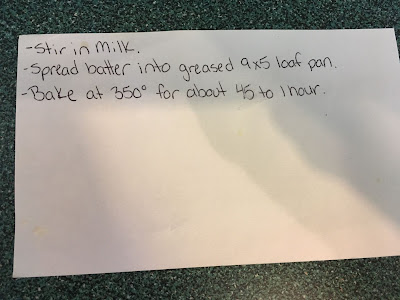 -Stir in Milk.
-Spread batter into greased 9x5 loaf pan.
-Bake at 350° for about 45 to 1 hour.